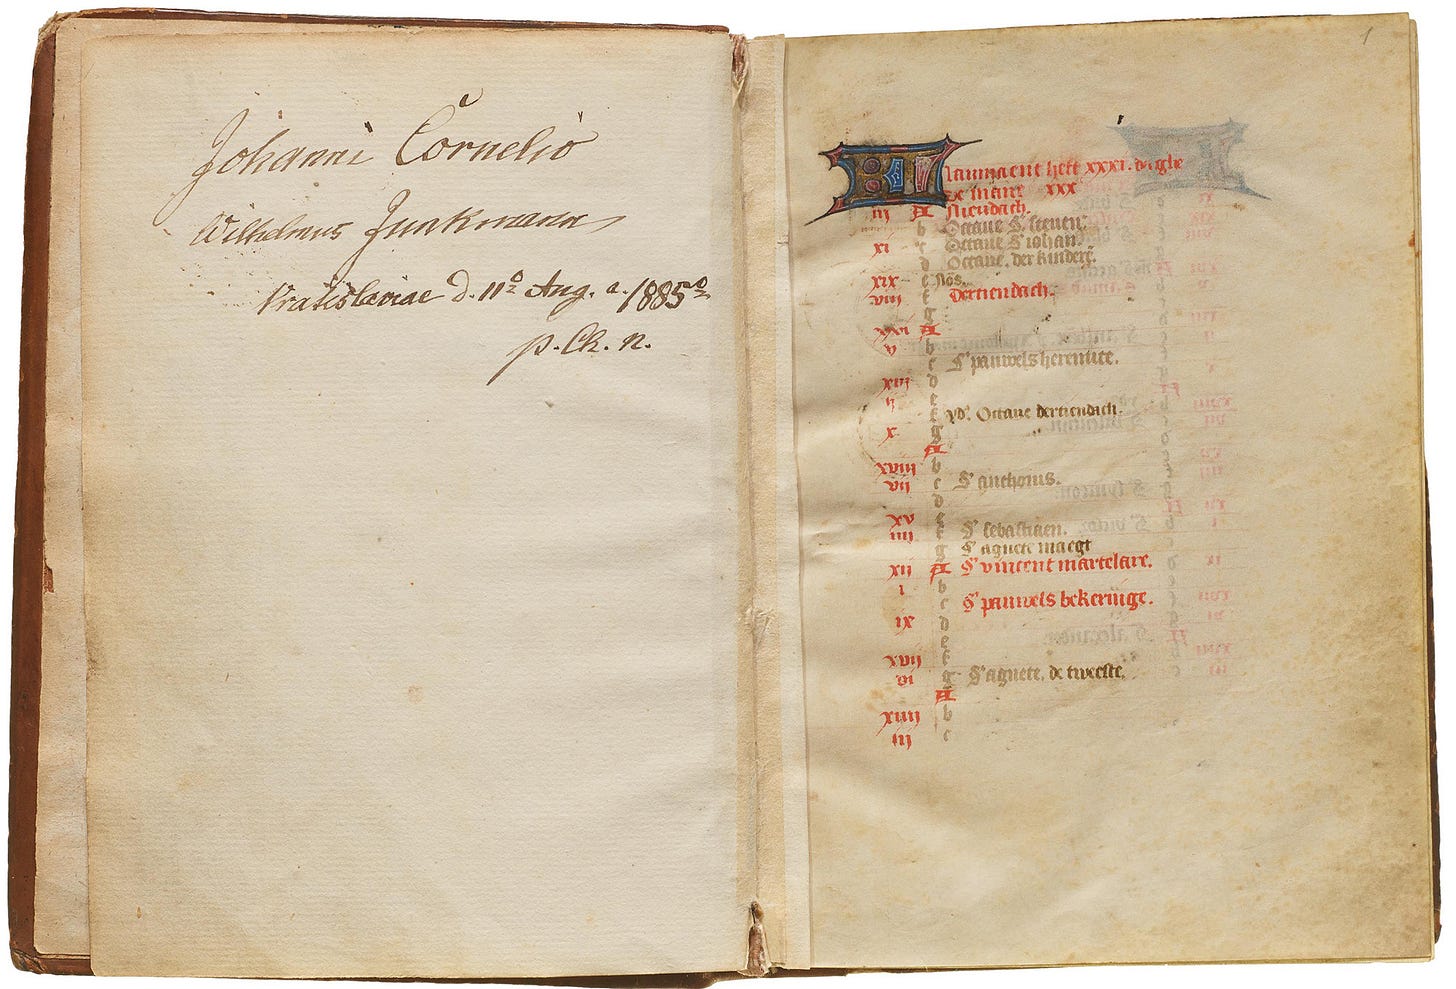 Johanni Cornelio
Wilhelmus Junkmann
Vratislaviae d. 11º Aug. a. 1885º
p. Ch. n.
1
Laumaent heft xxxi. daghe
mane xxx
iii A Niendach.
b Octaue S. steuen.
xi c Octaue S iohan.
d Octaue. der kinderē.
xix e Nōs.
viii f Dertiendach.
g
xvi A
v b
c S' pauwels heremite.
xiii d
ii e
f ydꝰ. Octaue dertiendach.
x g
A
xviii b
vii c S' anthonis.
d
xv e
iiii f S' sebastiaen.
g S' agnete maegt
xii A S' vincent martelare.
i b
c S' pauwels bekeringe.
ix d
e
xvii f
vi g S' agnete. de tweeste.
A
xiiii b
iii c